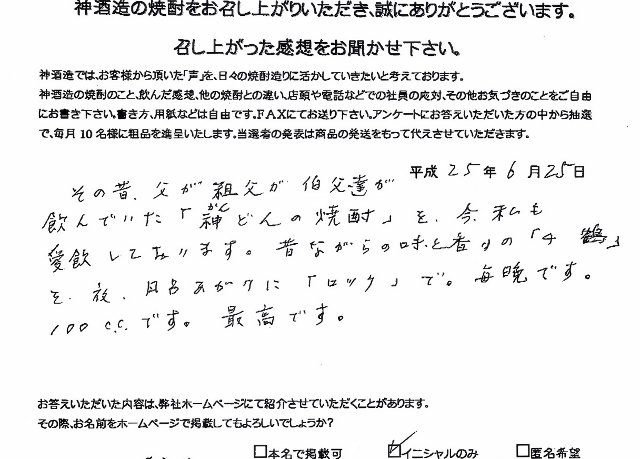 神酒造の焼酎をお召し上がりいただき、誠にありがとうございます。
召し上がった感想をお聞かせ下さい。
神酒造では、お客様から頂いた「声」を、日々の焼酎造りに活かしていきたいと考えております。
神酒造の焼酎のこと、飲んだ感想、他の焼酎との違い、店頭や電話などでの社員の応対、その他お気づきのことをご自由
にお書き下さい。書き方、用紙などは自由です。FAXにてお送り下さい。アンケートにお答えいただいた方の中から抽選
で、毎月10名様に粗品を進呈いたします。当選者の発表は商品の発送をもって代えさせていただきます。
平成25年6月25日
その昔、父が祖父が伯父達が
飲んでいた「神どんの焼酎」を、今、私も
がん
愛飲しております。昔ながらの味と香りの「千鶴」
を、夜、風呂あがりに「ロック」で。毎晩です。
100c.c.です。最高です。
お答えいただいた内容は、弊社ホームページにて紹介させていただくことがあります。
その際、お名前をホームページで掲載してもよろしいでしょうか?
□本名で掲載可 ☑イニシャルのみ □匿名希望